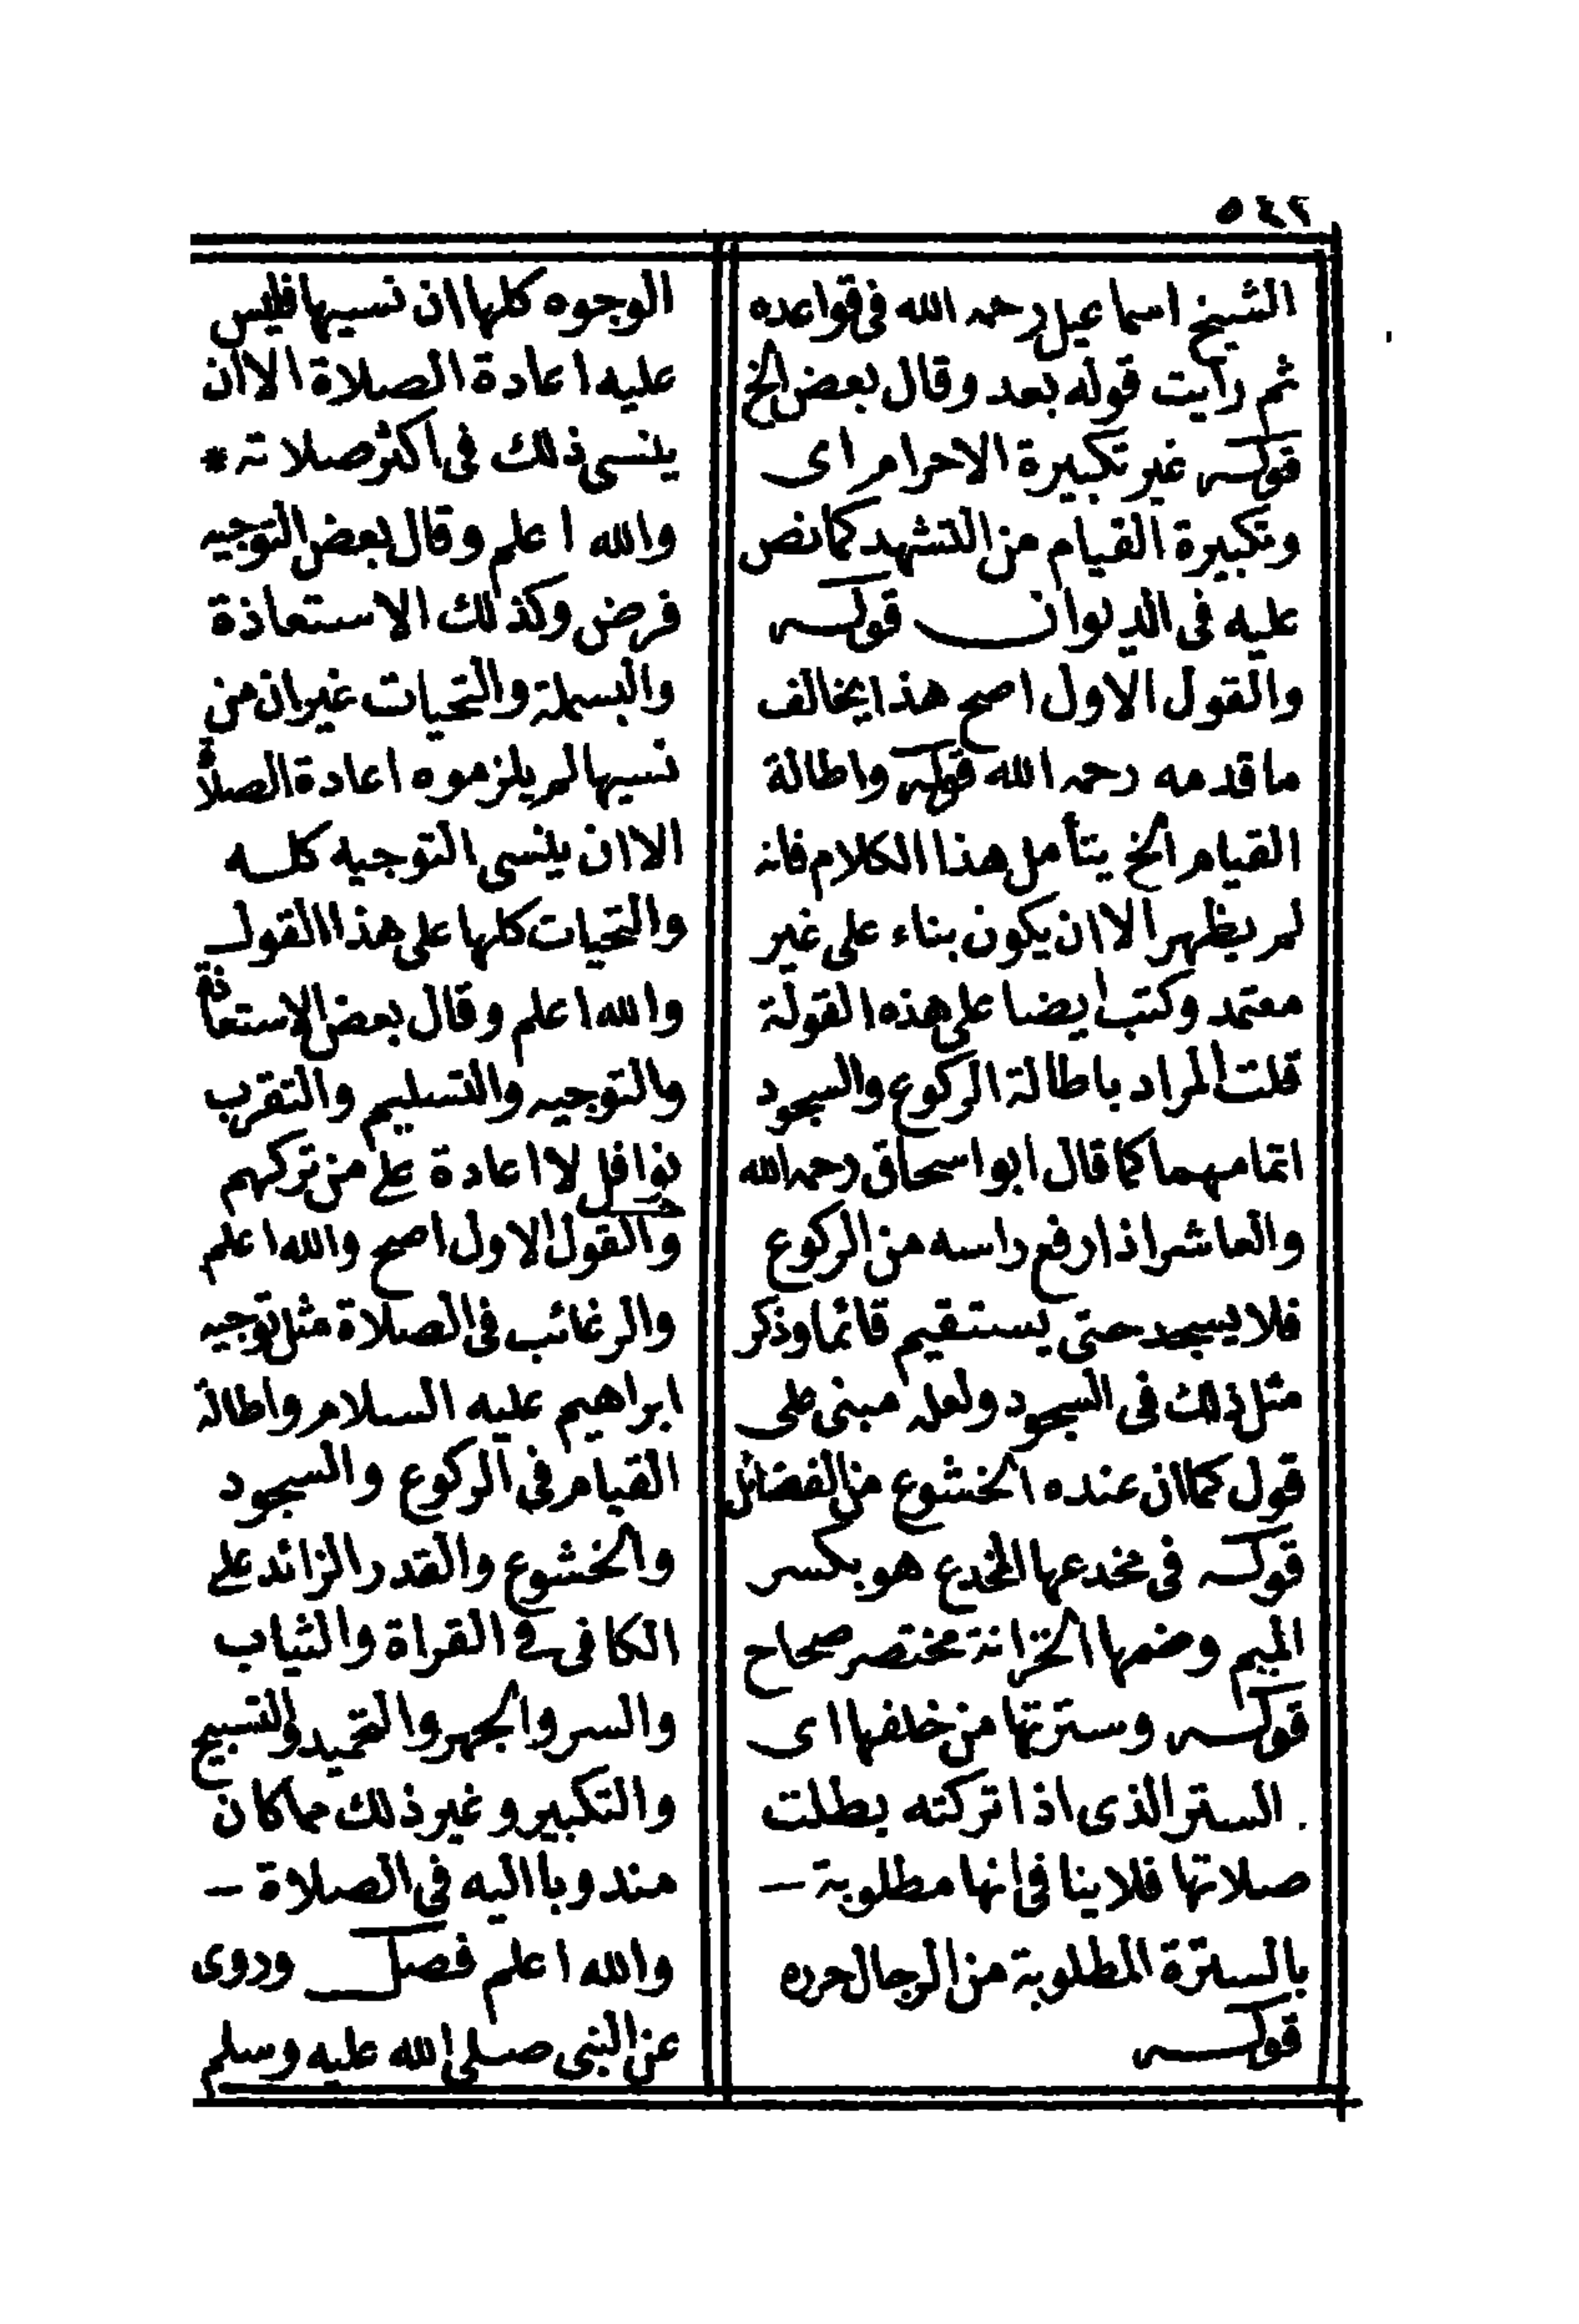 ٥٤٢
الشيخ اسماعيل رحمه الله فى قواعده
ثم رايت قوله بعد وقال بعض الخ
قوله غير تكبيرة الاحرام اى
وتكبيرة القيام من التشهد كما نص
عليه فى الديوان قوله
والقول الاول اصح هذا يخالف
ما قدمه رحمه الله قوله واطالة
القيام الخ يتأمل هذا الكلام فانه
لم يظهر الا ان يكون بناء على غير
معتمد وكتب ايضا على هذه القولة
قلت المراد باطالة الركوع والسجود
اتمامهما كما قال ابو اسحاق رحمه الله
والعاشر اذا رفع راسه من الركوع
فلا يسجد حتى يستقيم قائما وذكر
مثل ذلك فى السجود ولعله مبنى على
قول كما ان عنده الخشوع من الفضائل
قوله فى مخدعها المخدع هو بكسر
الميم وضمها الخزانة مختصر صحاح
قوله وسترتها من خلفها اى
الستر الذى اذا تركته بطلت
صلاتها فلا ينافى انها مطلوبة –
بالسترة المطلوبة من الرجال حرره
قوله
الوجوه كلها ان نسيها فليس
عليه اعادة الصلاة الا ان
ينسى ذلك فى اكثر صلاته *
والله اعلم وقال بعض التوجيه
فرض وكذلك الاستعاذة
والبسملة والتحيات غير ان من
نسيها لم يلزموه اعادة الصلاة
الا ان ينسى التوجيه كله
والتحيات كلها على هذا القول
والله اعلم وقال بعض الاستعاذة
والتوجيه والتسليم والتقرب
نوافل لا اعادة على من تركهم
والقول الاول اصح والله اعلم
والرغائب فى الصلاة مثل توجيه
ابراهيم عليه السلام واطالة
القيام فى الركوع والسجود
والخشوع والقدر الزائد على
الكافى فى القراة والثياب
والسر والجهر والتحميد والتسبيح
والتكبير وغير ذلك مما كان
مندوبا اليه فى الصلاة –
والله اعلم فصل وروى
عن النبى صلى الله عليه وسلم